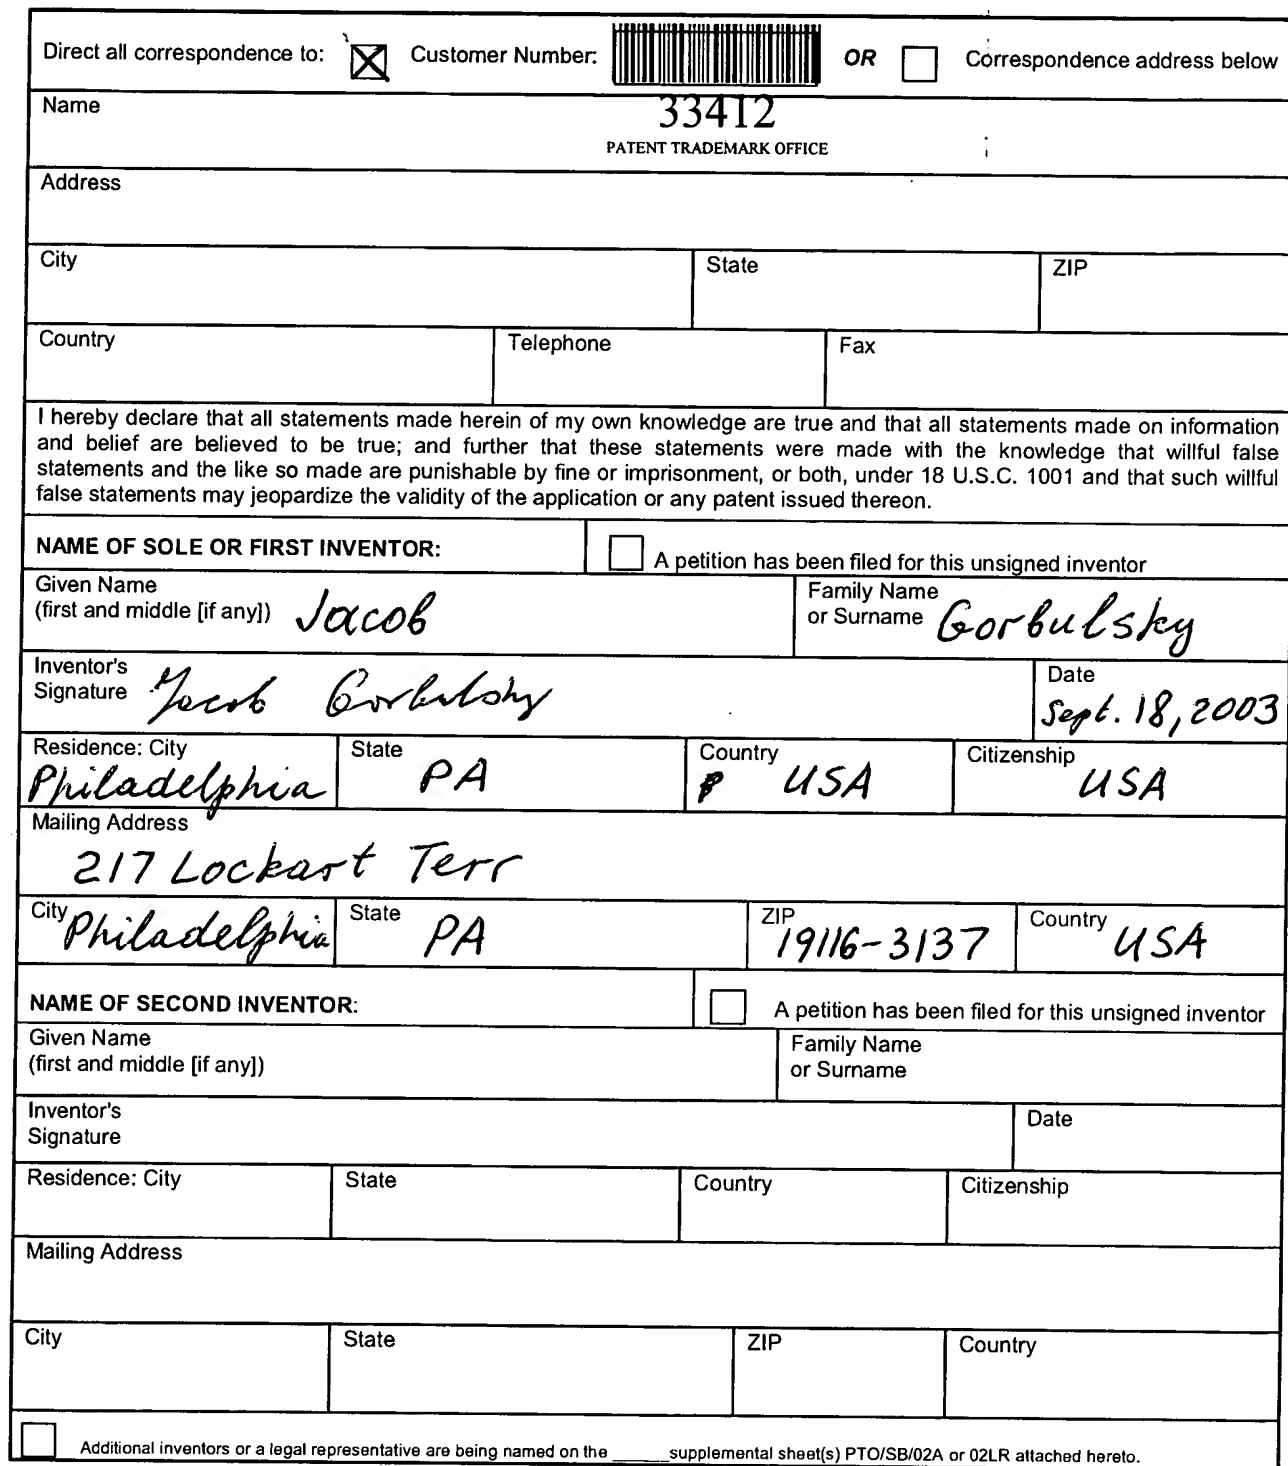 Direct all correspondence to: Customer Number: OR Correspondence address below
33412
PATENT TRADEMARK OFFICE
Name
Address
City State ZIP
Country Telephone Fax
I hereby declare that all statements made herein of my own knowledge are true and that all statements made on information
and belief are believed to be true; and further that these statements were made with the knowledge that willful false
statements and the like so made are punishable by fine or imprisonment, or both, under 18 U.S.C. 1001 and that such willful
false statements may jeopardize the validity of the application or any patent issued thereon.
NAME OF SOLE OR FIRST INVENTOR: A petition has been filed for this unsigned inventor
Given Name Family Name
(first and middle [if any]) Jacob or Surname Gorbulsky
Inventor's Date
Signature Jacob Gorbulsky Sept. 18, 2003
Residence: City State Country Citizenship
Philadelphia PA USA USA
Mailing Address
217 Lockart Terr
City Philadelphia State PA ZIP 19116-3137 Country USA
NAME OF SECOND INVENTOR: A petition has been filed for this unsigned inventor
Given Name Family Name
(first and middle [if any]) or Surname
Inventor's Date
Signature
Residence: City State Country Citizenship
Mailing Address
City State ZIP Country
Additional inventors or a legal representative are being named on the ______supplemental sheet(s) PTO/SB/02A or 02LR attached hereto.